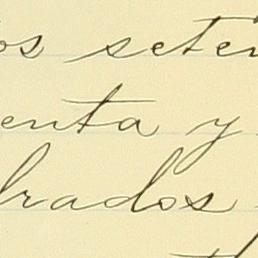 os seten
enta y
brados